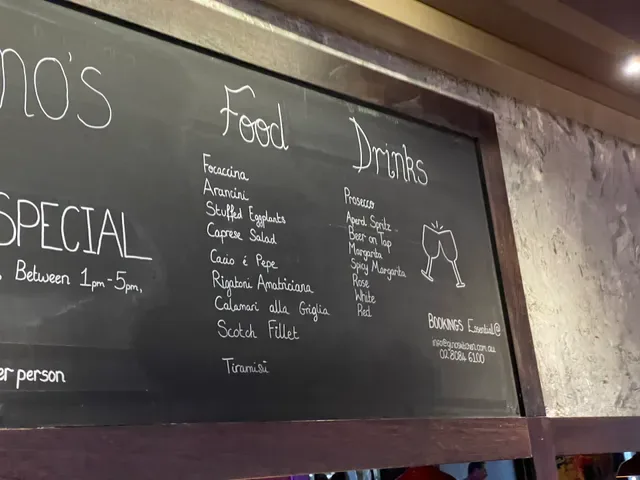 no's
SPECIAL
Between 1pm-5pm,
er person
Food
Focaccina
Arancini
Stuffed Eggplants
Caprese Salad
Cacio é Pepe
Rigatoni Amaticiana
Calamari alla Griglia
Scotch Fillet
Tiramisù
Drinks
Prosecco
Aperol Spritz
Beer on Tap
Margarita
Spicy Margarita
Rose
White
Red
BOOKINGS Essential@
02 8084 6100